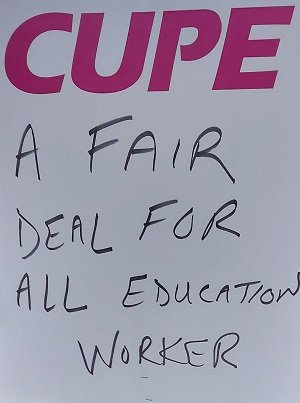 CUPE
A FAIR
DEAL FOR
ALL EDUCATION
WORKER